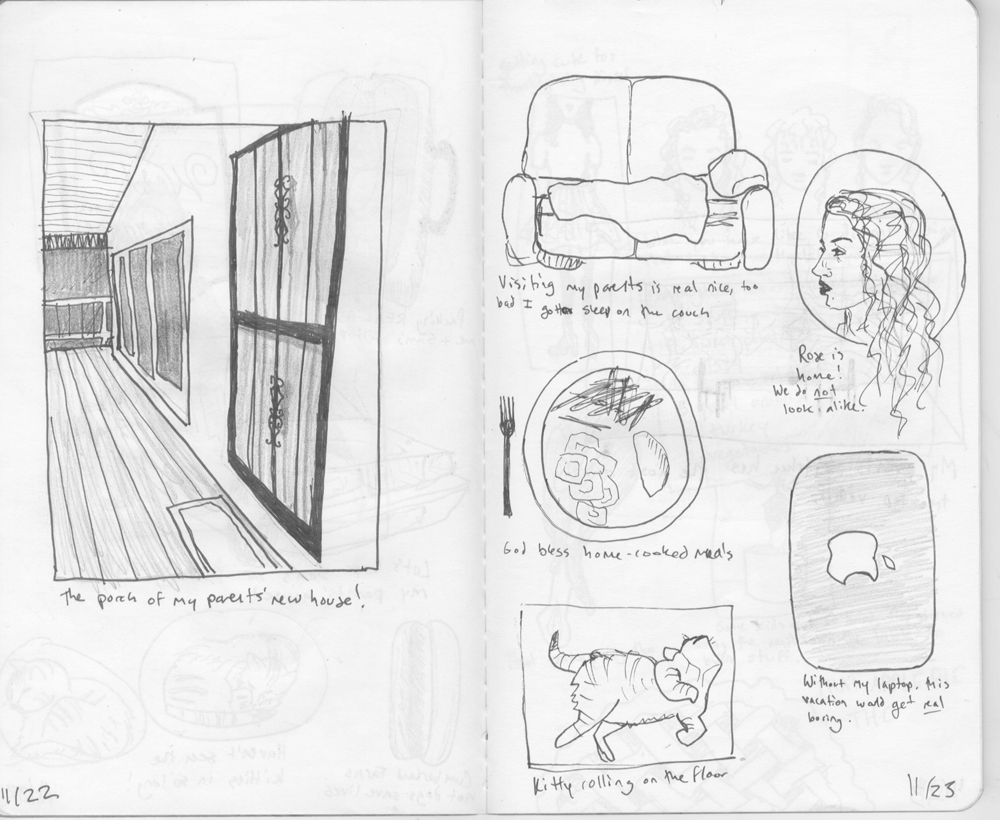 The porch of my parents' new house!
11/22
Visiting my parents is real nice, too
bad I gotta sleep on the couch
Rose is
home!
We do not
look alike.
God bless home-cooked meals
Without my laptop, this
vacation would get real
boring.
Kitty rolling on the floor
11/23